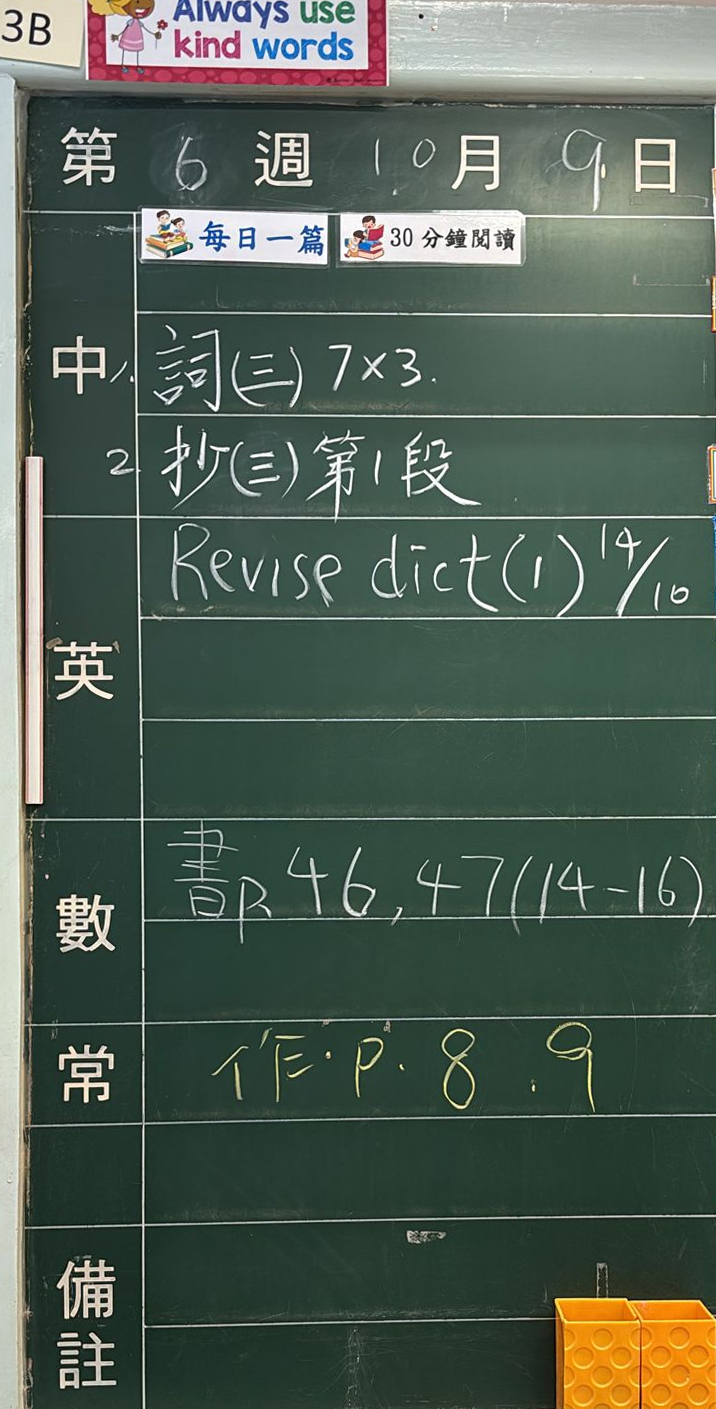 3B
Always use
kind words
第 6 週 10月 9日
每日一篇 30分鐘閱讀
中 1. 詞(三) 7×3.
2 抄(三)第1段
英 Revise dict(1) 14/10
數 書P 46, 47(14-16)
常 作.P. 8 . 9
備註